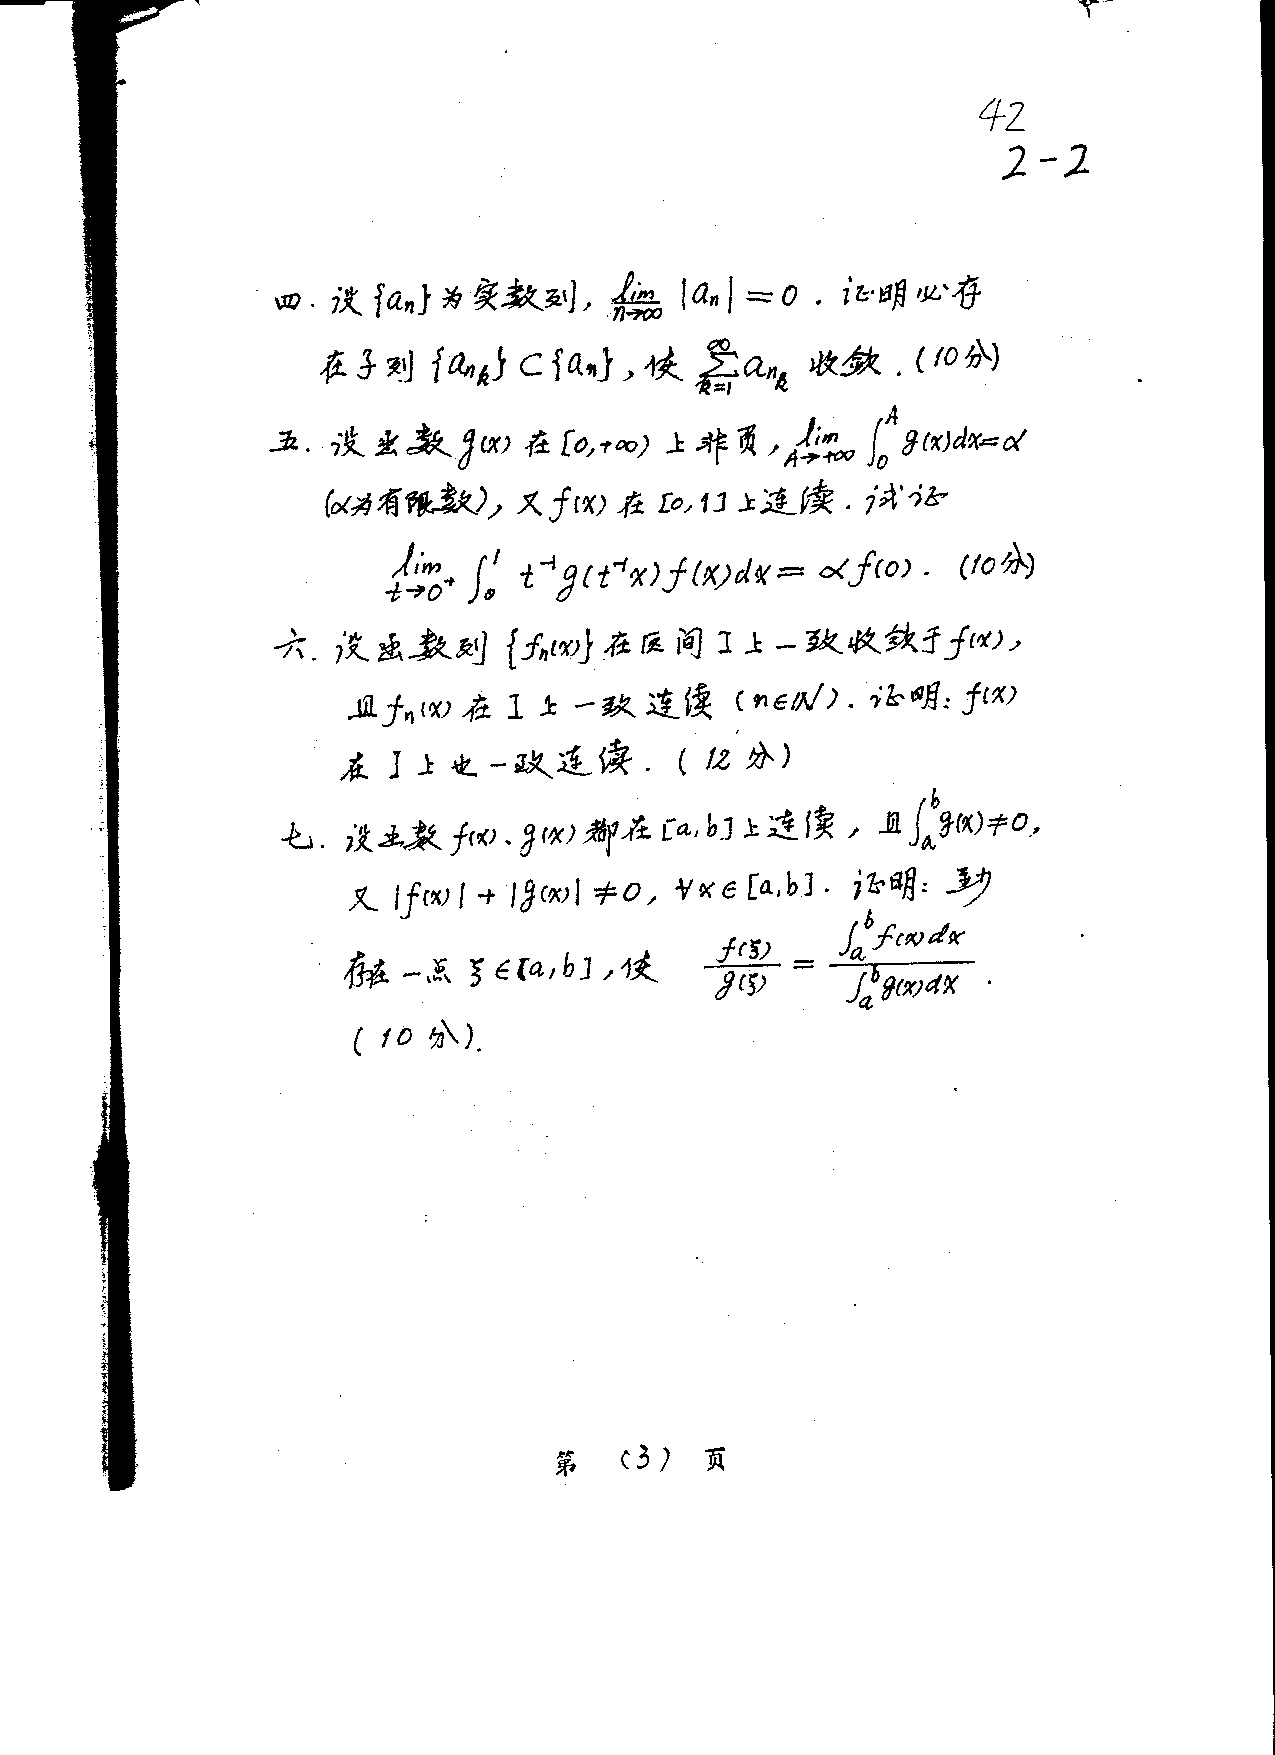 42
2-2
四. 设{aₙ}为实数列, lim_{n→∞} |aₙ| = 0. 证明必存
在子列 {a_{n_k}} ⊂ {aₙ}, 使 ∑_{k=1}^{∞} a_{n_k} 收敛. (10分)
五. 设函数 g(x) 在 [0,+∞) 上非负, lim_{A→+∞} ∫_0^A g(x)dx=α
(α为有限数), 又 f(x) 在 [0,1] 上连续. 试证
lim_{t→0⁺} ∫_0^1 t⁻¹g(t⁻¹x)f(x)dx = αf(0). (10分)
六. 设函数列 {fₙ(x)} 在区间 I 上一致收敛于 f(x),
且 fₙ(x) 在 I 上一致连续 (n∈ℕ). 证明: f(x)
在 I 上也一致连续. (12 分)
七. 设函数 f(x)、g(x) 都在 [a,b] 上连续, 且 ∫_a^b g(x) ≠ 0,
又 |f(x)| + |g(x)| ≠ 0, ∀x∈[a,b]. 证明: 至少
存在一点 ξ∈[a,b], 使 f(ξ)/g(ξ) = ∫_a^b f(x)dx / ∫_a^b g(x)dx .
(10 分).
第 (3) 页